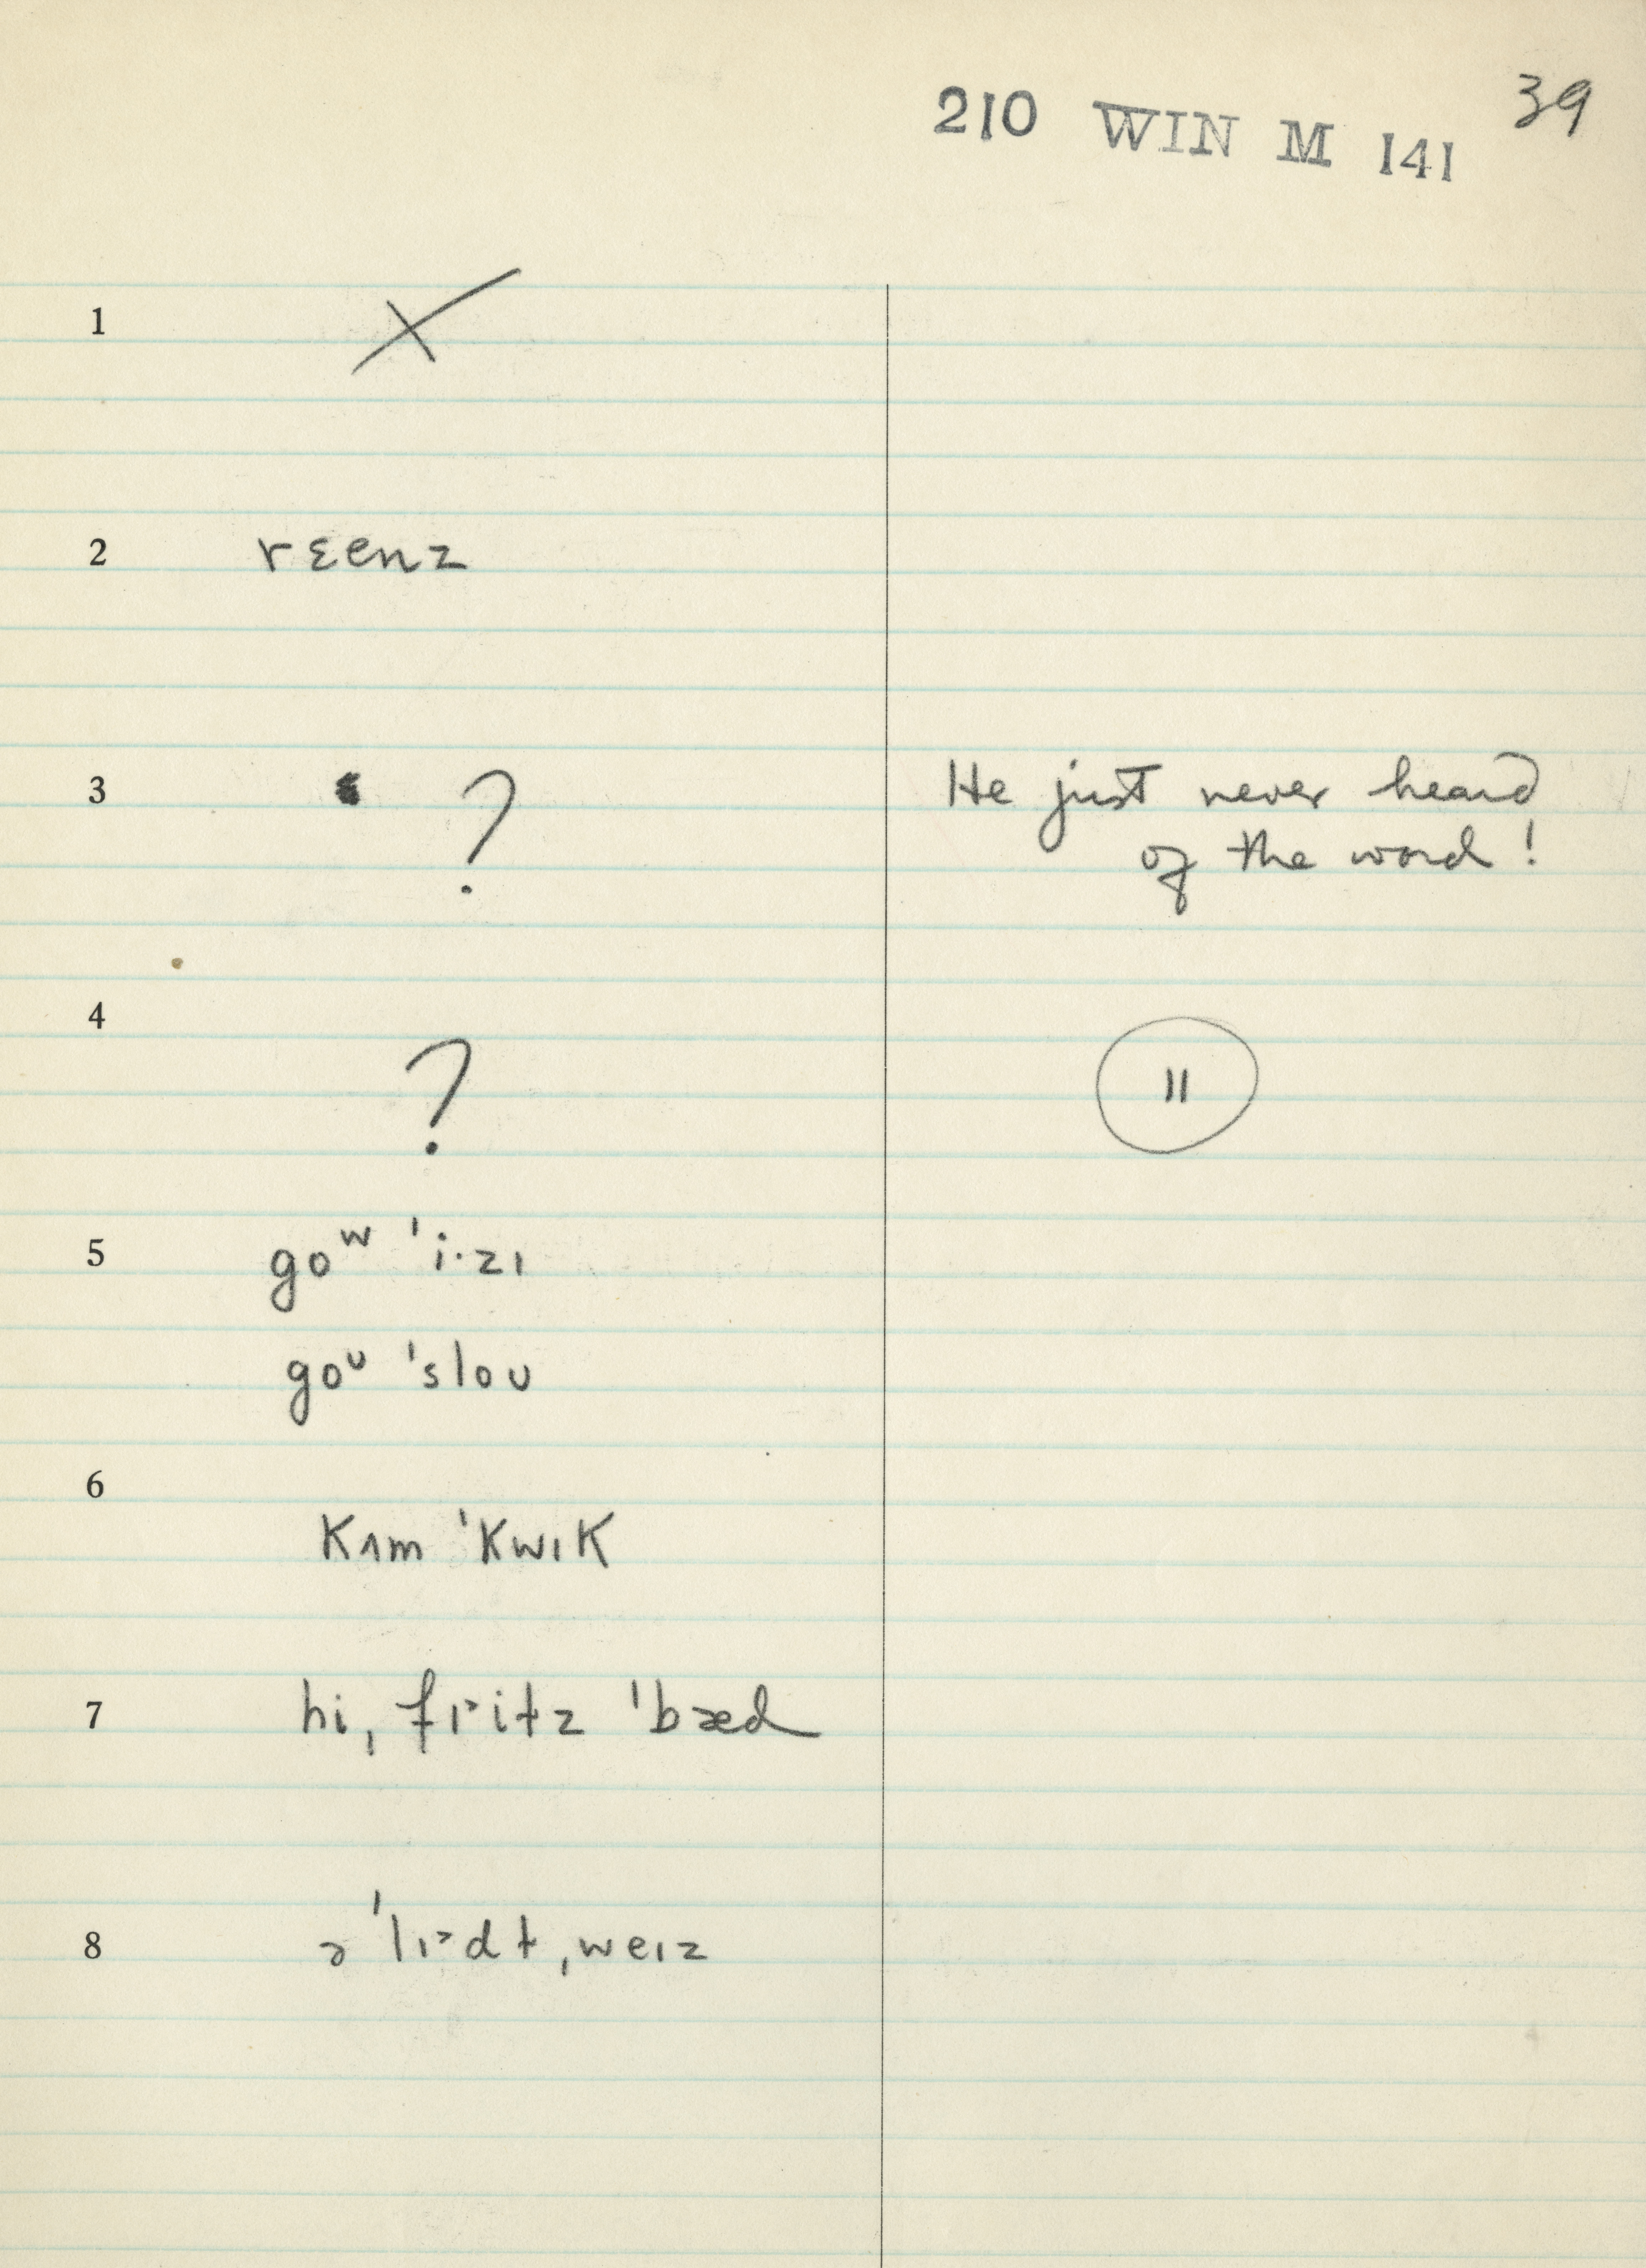 210 WIN M 141 39
1 X
2 rɛenz
3 ? He just never heard
of the word !
4 ? "
5 goʷ 'i·zɪ
goᶷ 'sloʊ
6 kʌm 'kwɪk
7 hi, frits 'bæd
8 ə'lɪədt ˌweɪz